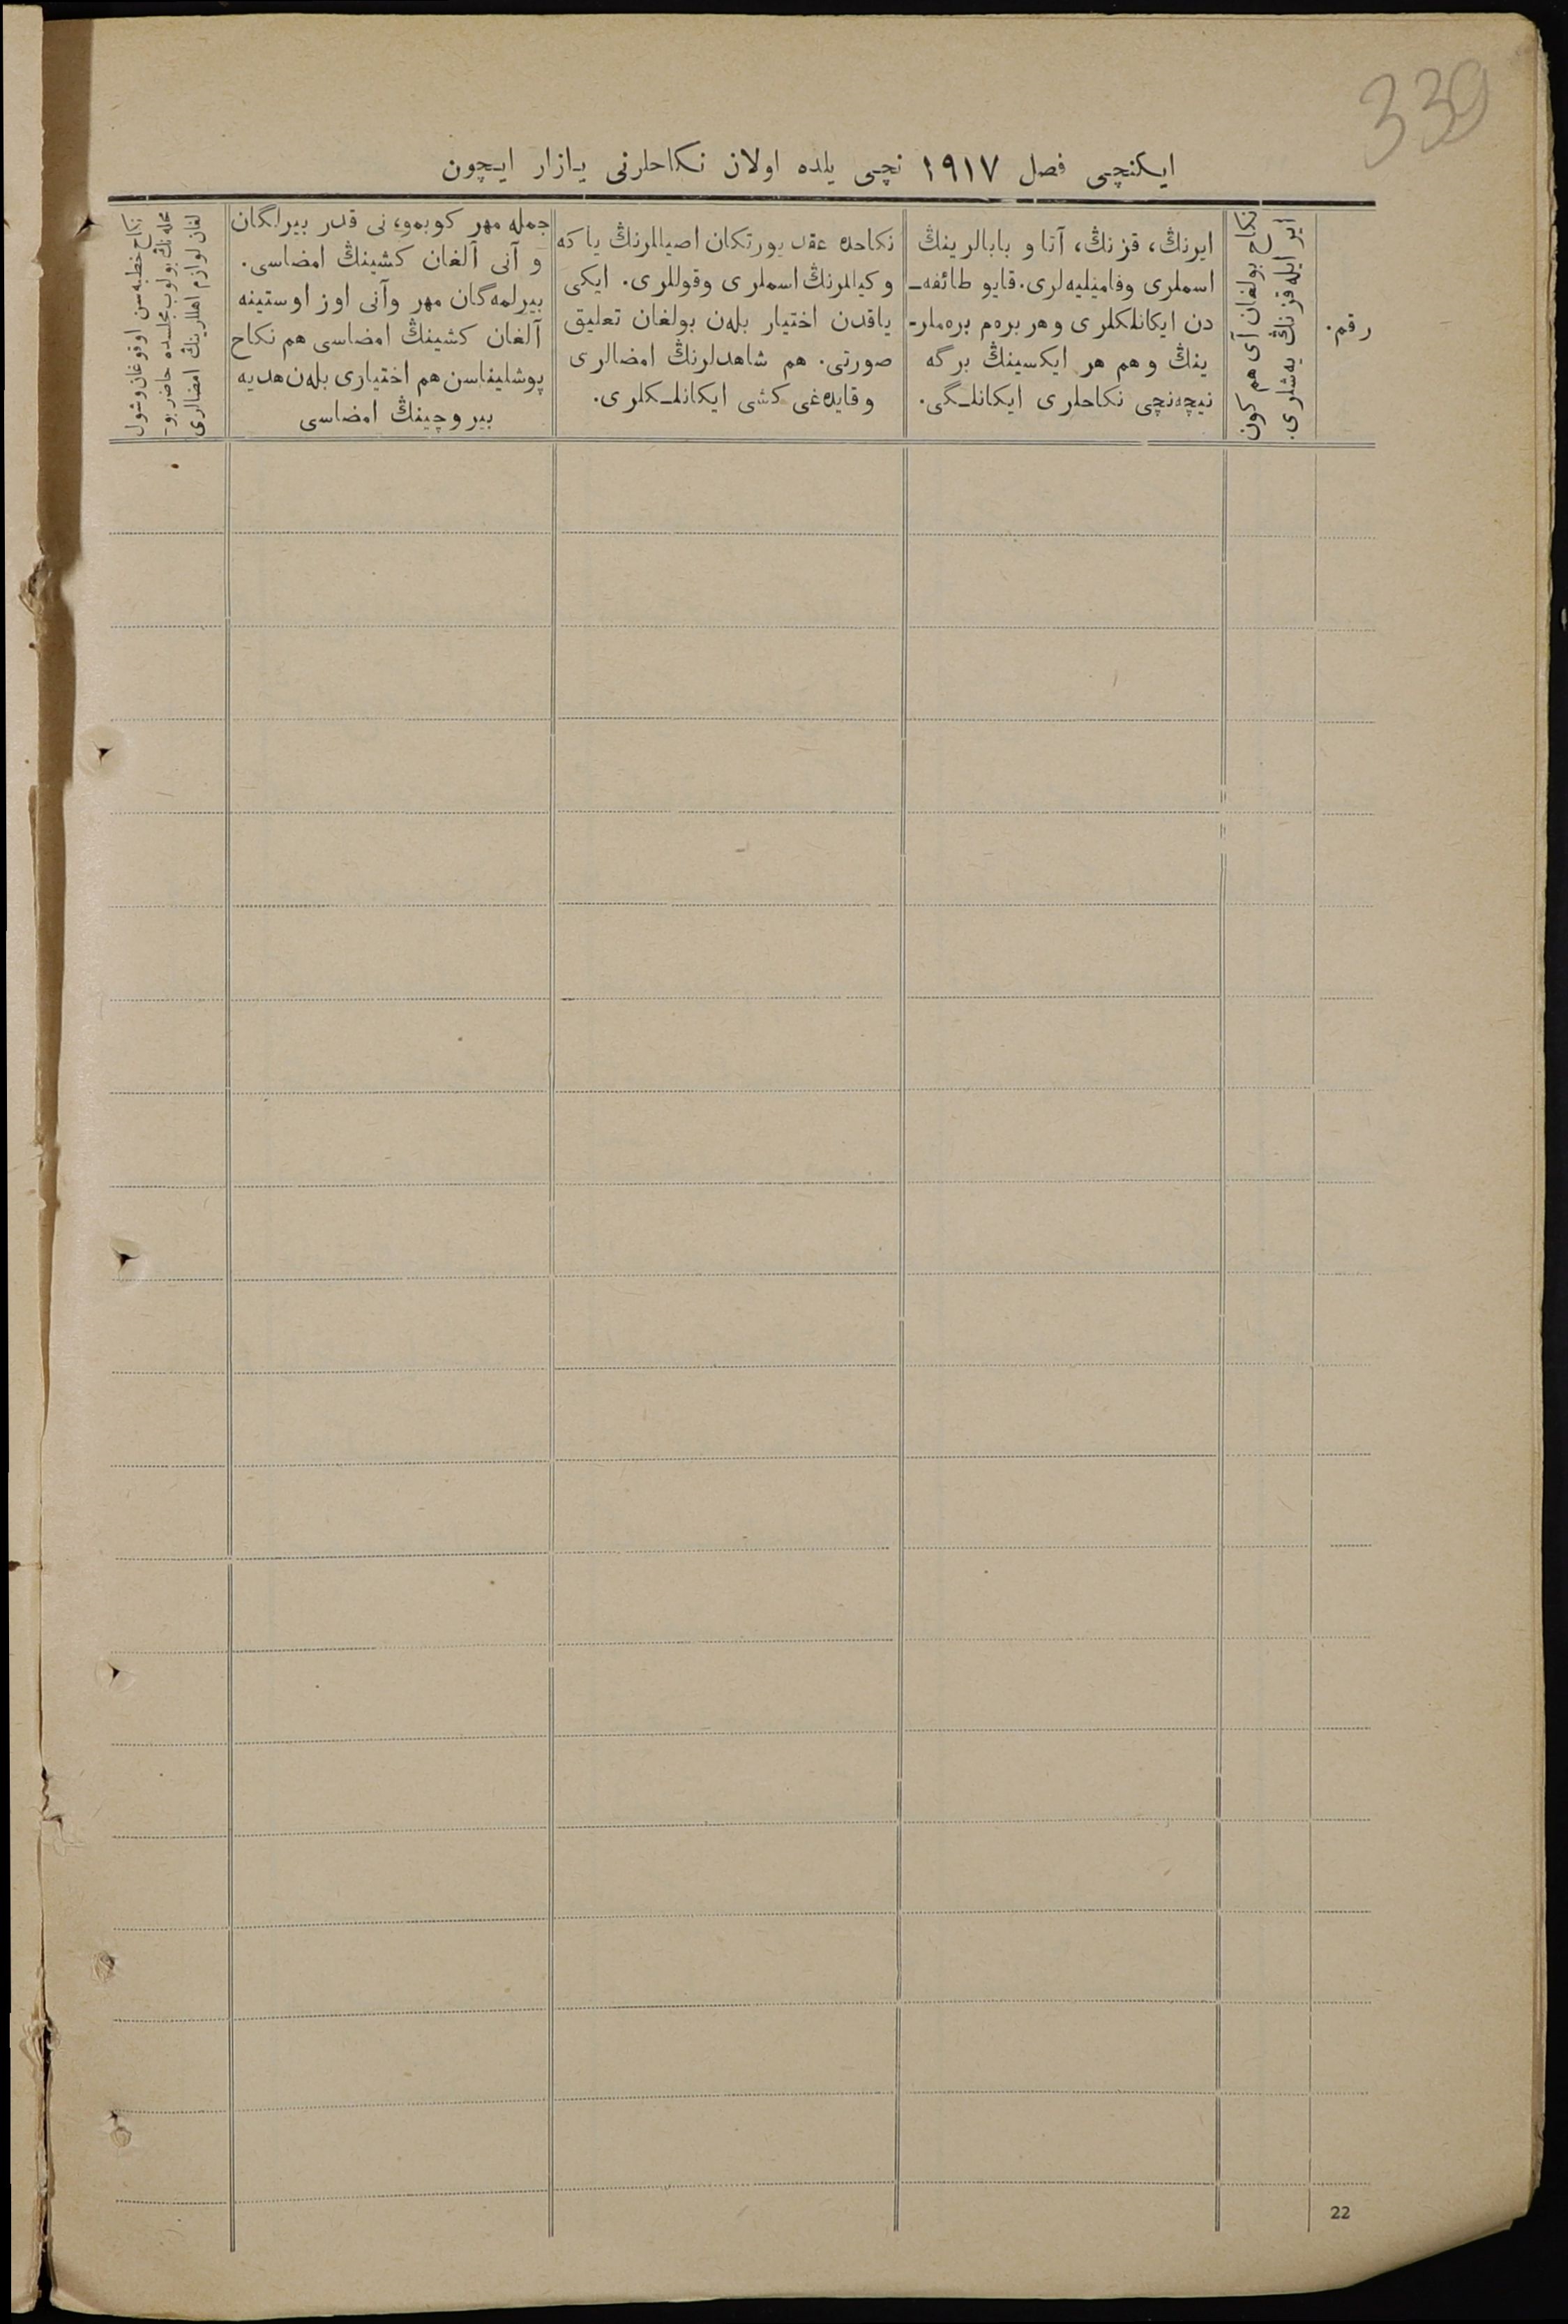 339
ایکنچی فصل ١٩١٧ نچی یلده اولان نکاحلرنی یازار ایچون
رقم.
نکاح بولغان آی هم کون
ایر ایله قزنڭ یه‌شلری.
ایرنڭ، قزنڭ، آتا و بابالرینڭ
اسملری وفامیلیه‌لری. قایو طائفه‌ـ
دن ایکانلکلری وهر بره‌م بره‌ملر-
ینڭ وهم هر ایکسینڭ برگه
نیچه‌نچی نکاحلری ایکانلـگی.
نکاحده عقد یورتکان اصیللرنڭ یا که
وکیللرنڭ اسملری وقوللری. ایکی
یاقدن اختیار بله‌ن بولغان تعلیق
صورتی. هم شاهدلرنڭ امضالری
وقایده‌غی کشی ایکانلـکلری.
جمله مهر کوبموء نی قدر بیرلگان
و آنی آلغان کشینڭ امضاسی.
بیرلمه‌گان مهر وآنی اوز اوستینه
آلغان کشینڭ امضاسی هم نکاح
پوشلیناسن هم اختیاری بله‌ن هدیه
بیروچینڭ امضاسی
نکاح خطبه‌سن اوقوغان وشول
محله‌نڭ بولوب مجلسده حاضر بو-
لغان لوازم اهللرینڭ امضالری
22